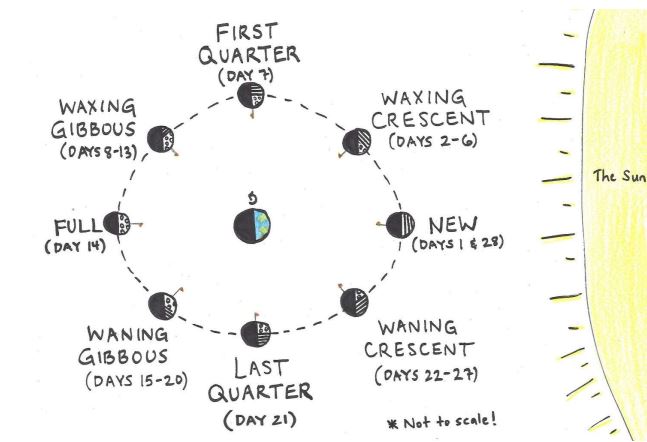 FIRST
QUARTER
(DAY 7)
WAXING
CRESCENT
(DAYS 2-6)
WAXING
GIBBOUS
(DAYS 8-13)
The Sun
FULL
(DAY 14)
NEW
(DAYS 1 & 28)
WANING
GIBBOUS
(DAYS 15-20)
LAST
QUARTER
(DAY 21)
WANING
CRESCENT
(DAYS 22-27)
* Not to scale!